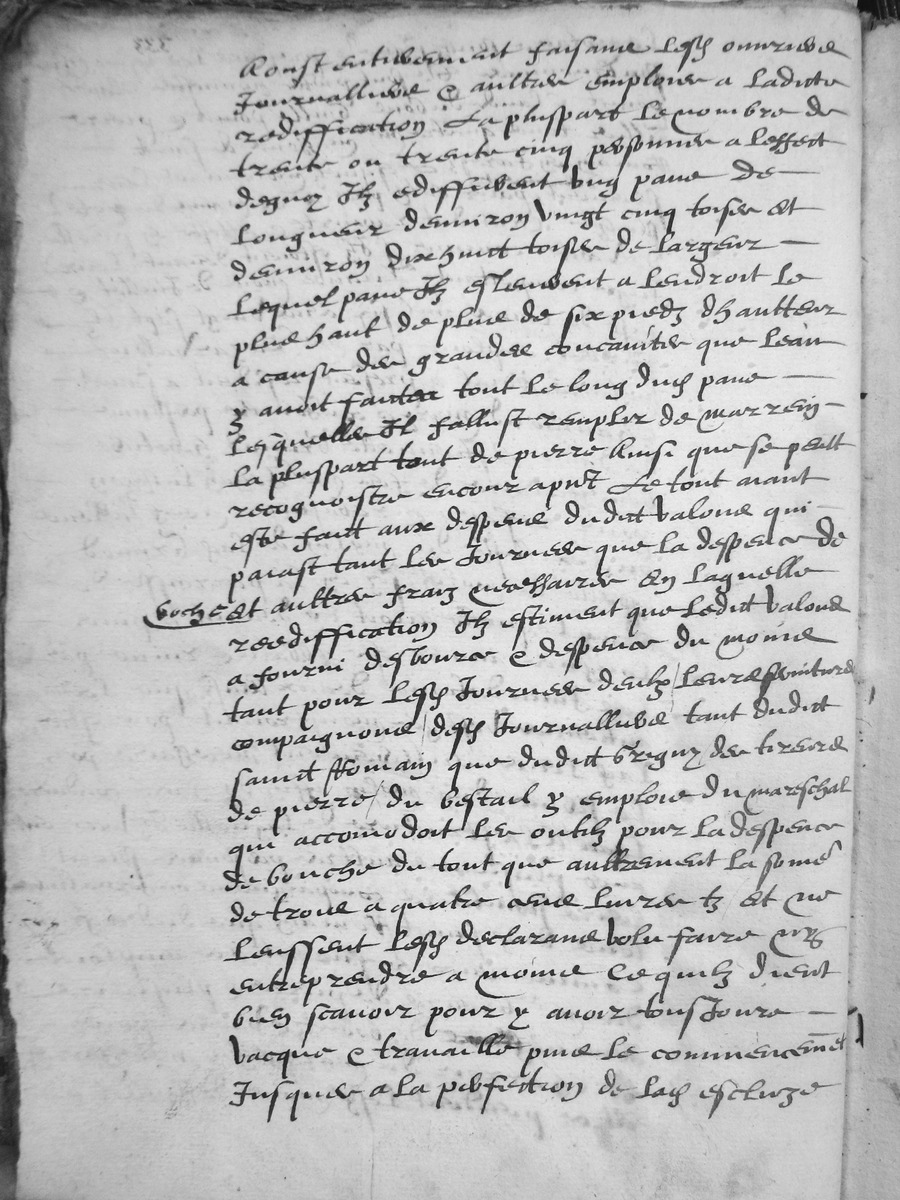 Aoust entivement faisans lesd ouvriers
Journalliers & aultres emploies a ladicte
rediffication La pluspart le nombre de
trente ou trente cinq personnes a leffect
dequoy Ilz ediffierent ung pave de
Longueur denviron vingt cinq toises et
denviron dix huict toises de largeur
lequel pave Ilz esleverent a lendroit le
plus hault de plus de six piedz dhaulteur
a cause des grandes concavites que leau
y avoit faictes tout le long dud pave
lesquelles Il fallust remplir de marrein
la pluspart tout de pierre Ainsi que se peult
recognoistre encour apnt Le tout aiant
este faict aux despens dudict Valous qui
paiast tant les Journees que la despence de
boche et aultres fraiz necessaires En laquelle
reediffication Ilz estiment que ledict Valous
a fourni desbource & despence du moins
tant pour lesd Journees deulx / leurs
compaignons / desd Journalliers tant dudict
sainct Romain que dudict Grigny des tireurs
de pierre / du bestail y emploie du mareschal
qui accomodoit les outilz pour la despence
de bouche du tout que aultrement la some
de trois a quatre cens livres tz Et ne
leussent lesd declarans volu faire ny
entreprendre a moins Ce quilz dient
bien scavoir pour y avoir tousJours
vacque & travaille puis le commencemet
Jusques a la perfection de lad escluze